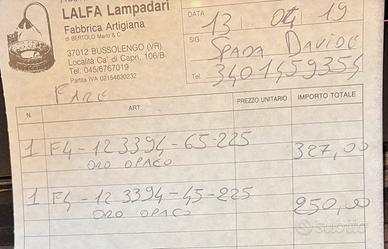 LALFA Lampadari
Fabbrica Artigiana
di BERTOLO Mario & C.
37012 BUSSOLENGO (VR)
Località Ca' di Capri, 106/B
Tel. 045/6767019
Partita IVA 02154630232
DATA 13 04 19
SIG. SPADA DAVIDE
Tel. 3401459354
FARE
N. ART. PREZZO UNITARIO IMPORTO TOTALE
1 F4-123394-65-225 327,00
ORO OPACO
1 F4-123394-45-225 250,00
ORO OPACO
subito